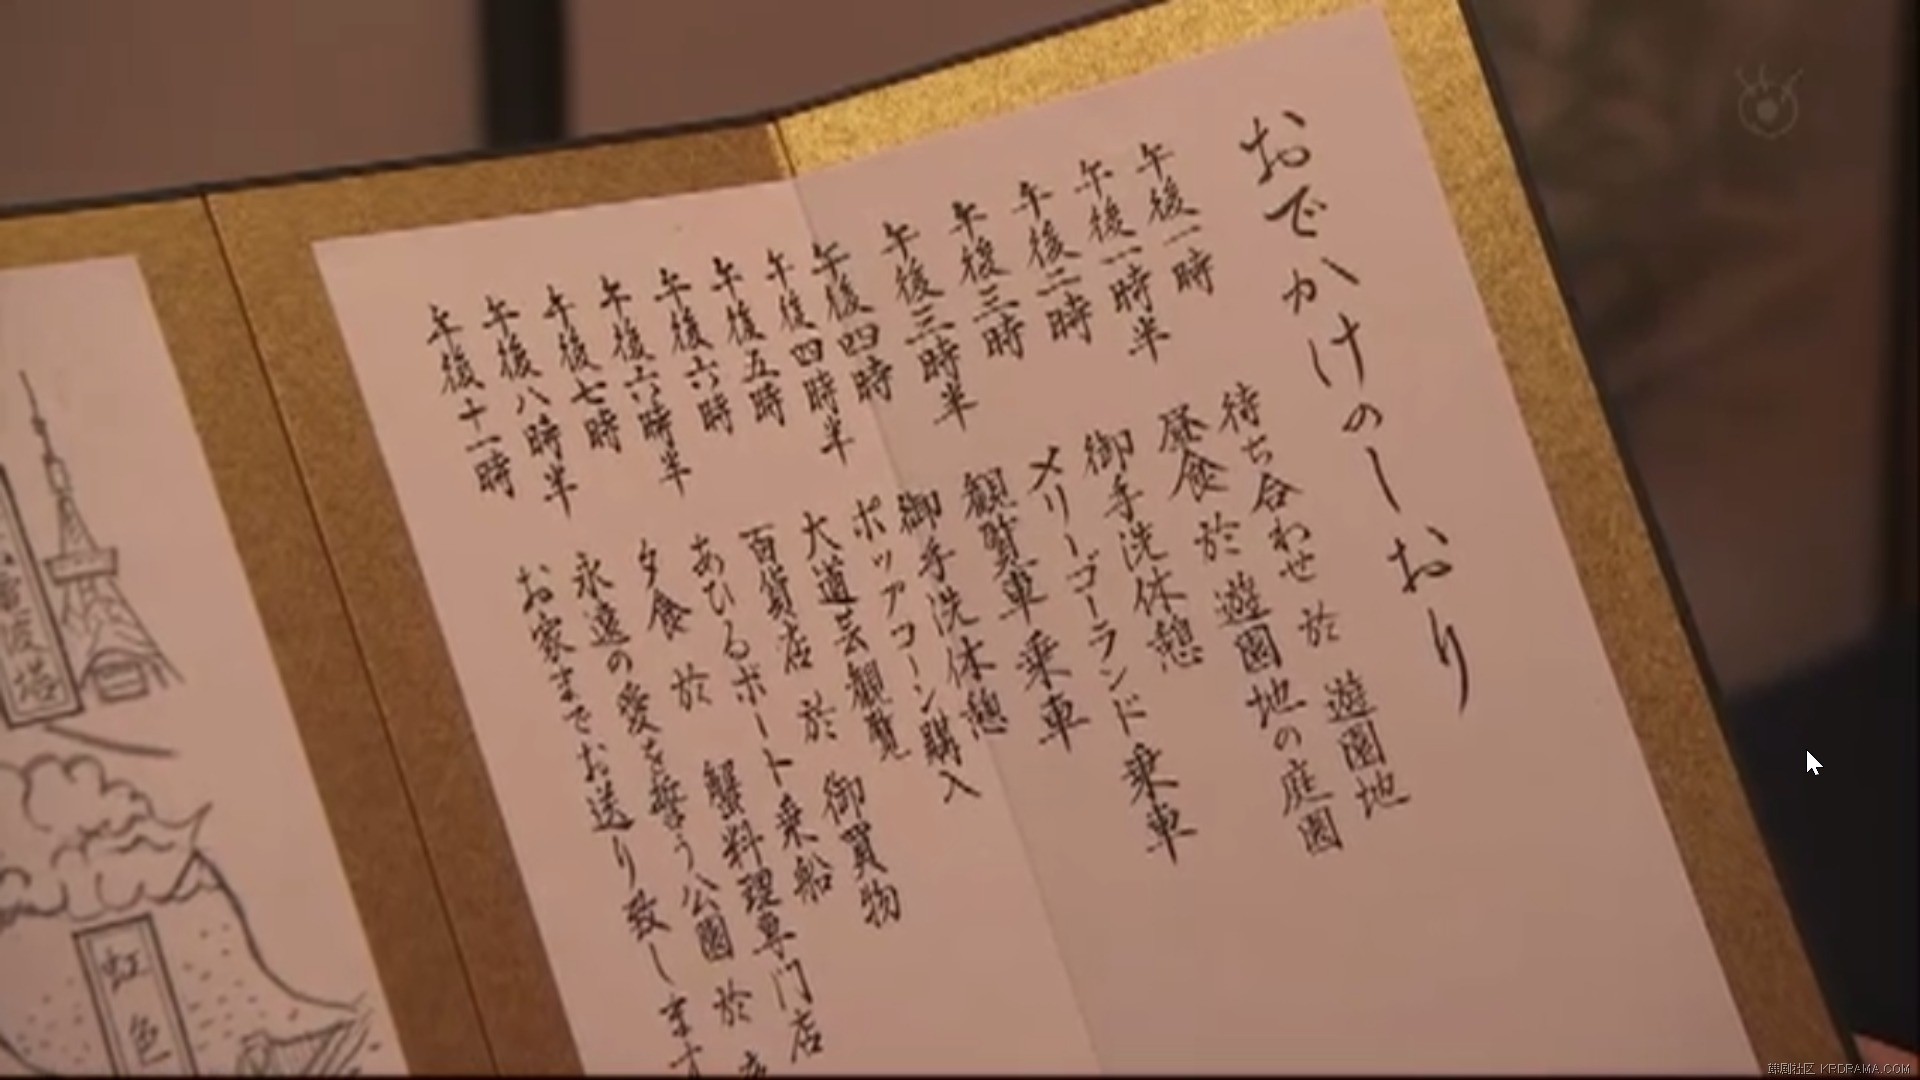 おでかけのしおり
午後一時 待ち合わせ 於 遊園地
午後一時半 昼食 於 遊園地の庭園
午後二時 御手洗休憩
午後三時 メリーゴーランド乗車
午後三時半 観覧車乗車
午後四時 御手洗休憩
午後四時半 ポップコーン購入
午後五時 大道芸観覧
午後六時 百貨店 於 御買物
午後六時半 あひるボート乗船
午後七時 夕食 於 蟹料理専門店
午後八時半 永遠の愛を誓う公園 於
午後十一時 お家までお送り致します
電波塔
虹色
韩剧社区 KRDRAMA.COM